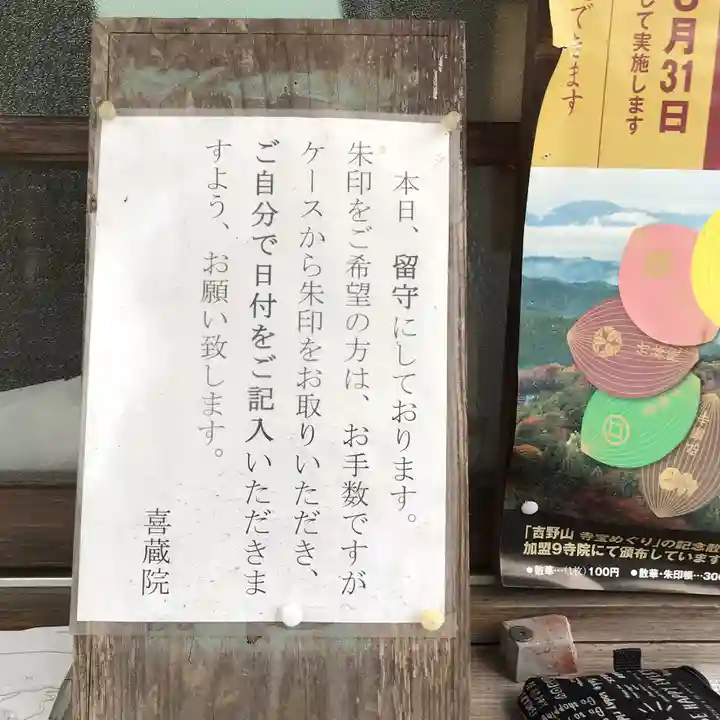 本日、留守にしております。
朱印をご希望の方は、お手数ですが
ケースから朱印をお取りいただき、
ご自分で日付をご記入いただきま
すよう、お願い致します。
喜蔵院
月31日
して実施します
できます
「吉野山 寺宝めぐり」の記念散
加盟9寺院にて頒布しています
●散華…(1枚)100円 ●散華・朱印帳…300